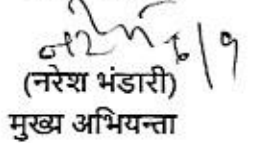 (नरेश भंडारी)
मुख्य अभियन्ता